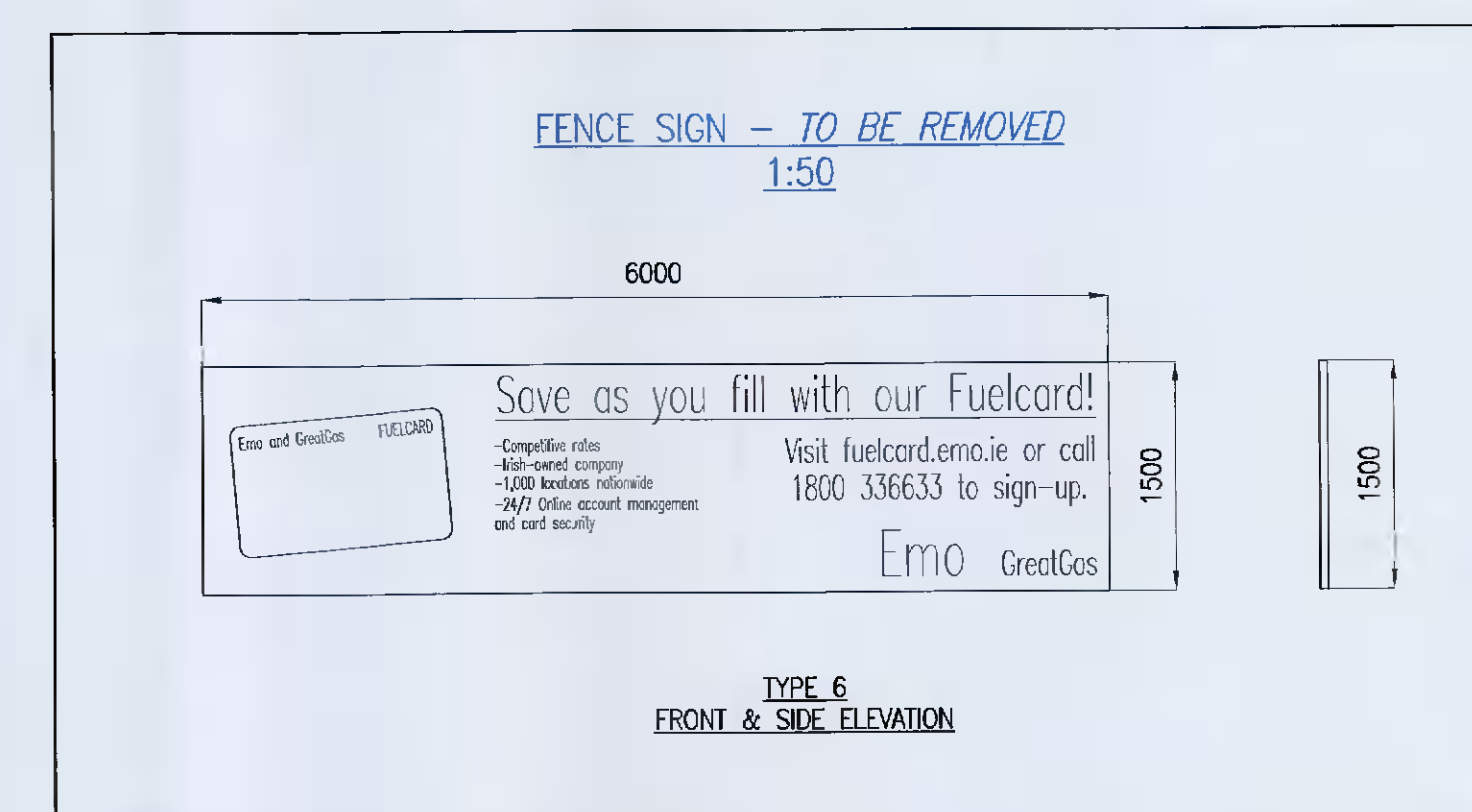 FENCE SIGN – TO BE REMOVED
1:50
6000
Save as you fill with our Fuelcard!
Emo and GreatGas FUELCARD
-Competitive rates
-Irish-owned company
-1,000 locations nationwide
-24/7 Online account management
and card security
Visit fuelcard.emo.ie or call
1800 336633 to sign-up.
Emo GreatGas
1500
1500
TYPE 6
FRONT & SIDE ELEVATION